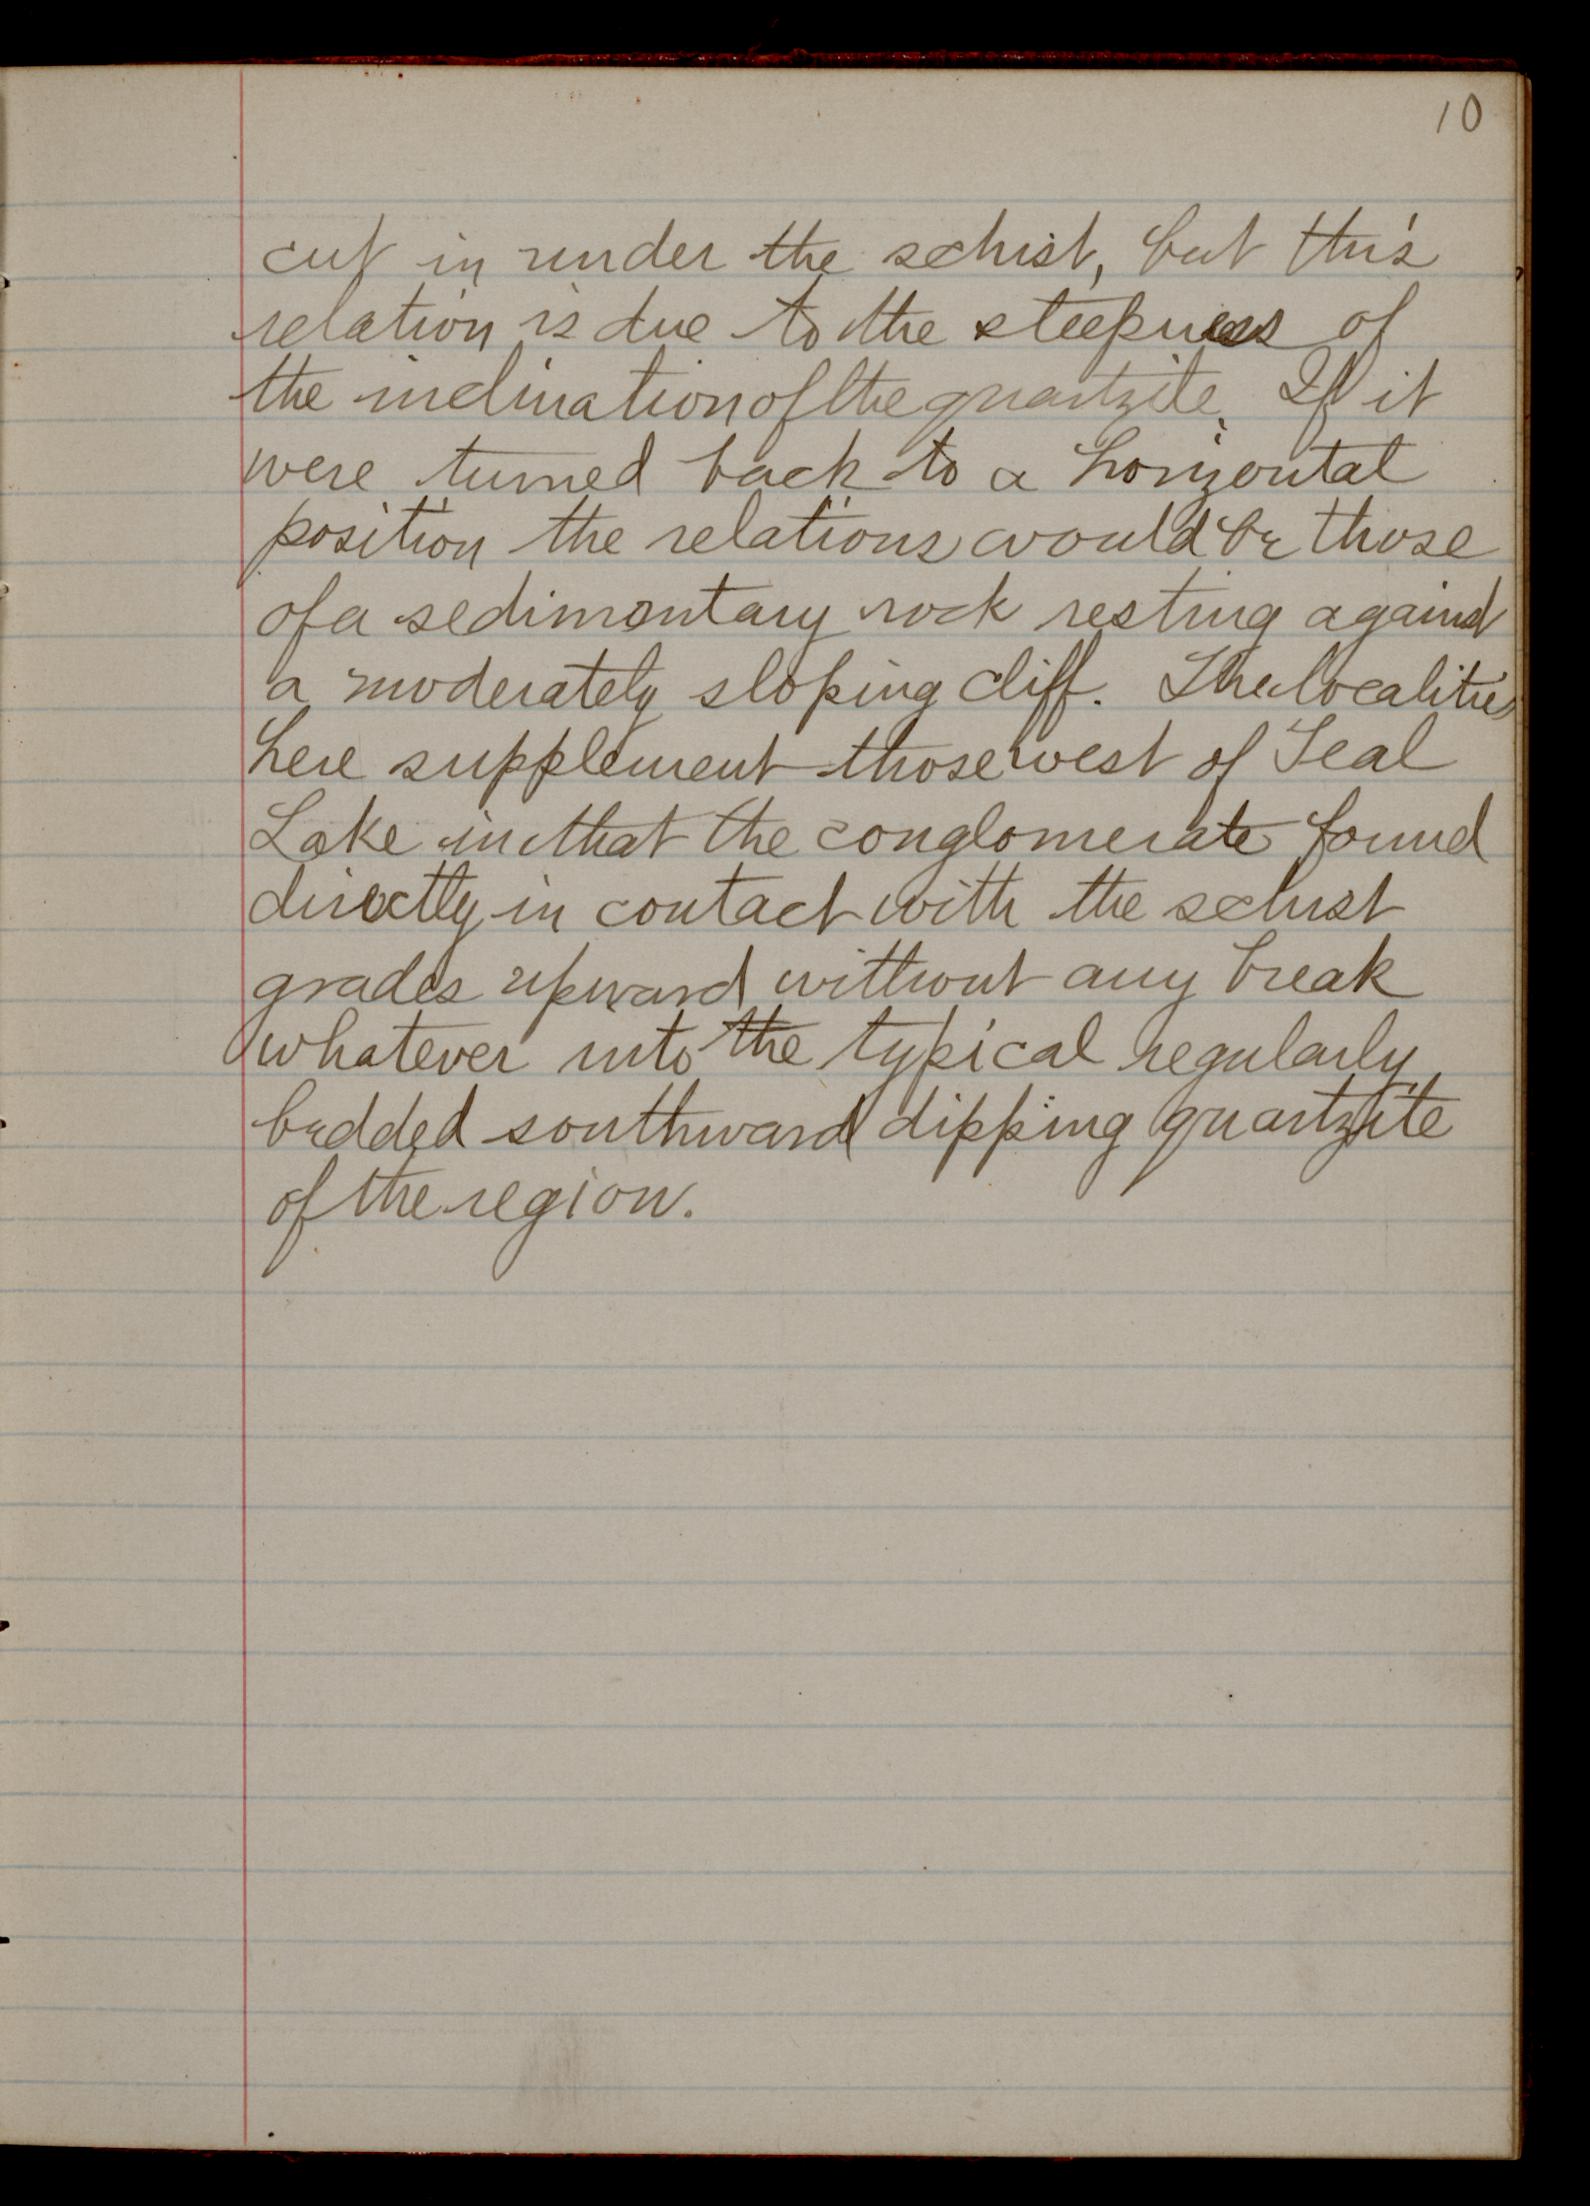 10
cut in under the schist, but this
relation is due to the steepness of
the inclination of the quartzite. If it
were turned back to a horizontal
position the relations would be those
of a sedimentary rock resting against
a moderately sloping cliff. The localities
here supplement those west of Teal
Lake in that the conglomerate found
directly in contact with the schist
grades upward without any break
whatever into the typical regularly
bedded southward dipping quartzite
of the region.